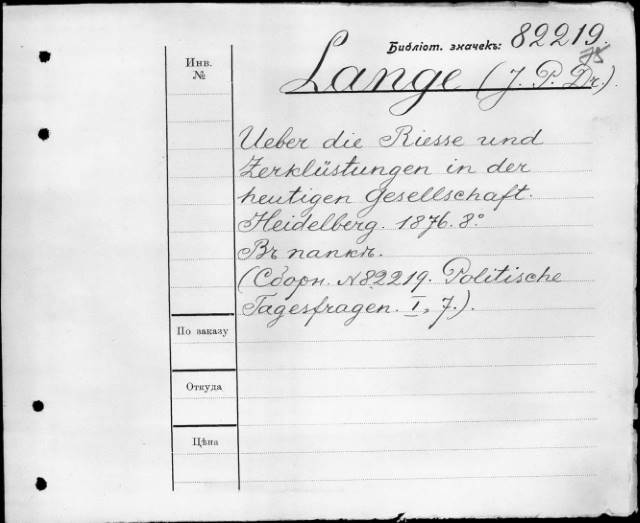 Библіот. значекъ: 82219.
Инв. №
Lange (J. P. Dr.).
Ueber die Riesse und
Zerklüstungen in der
heutigen Gesellschaft.
Heidelberg. 1876. 8°.
Въ папкѣ.
(Сборн. №82219. Politische
Tagesfragen. I, 7.).
По заказу
Откуда
Цѣна